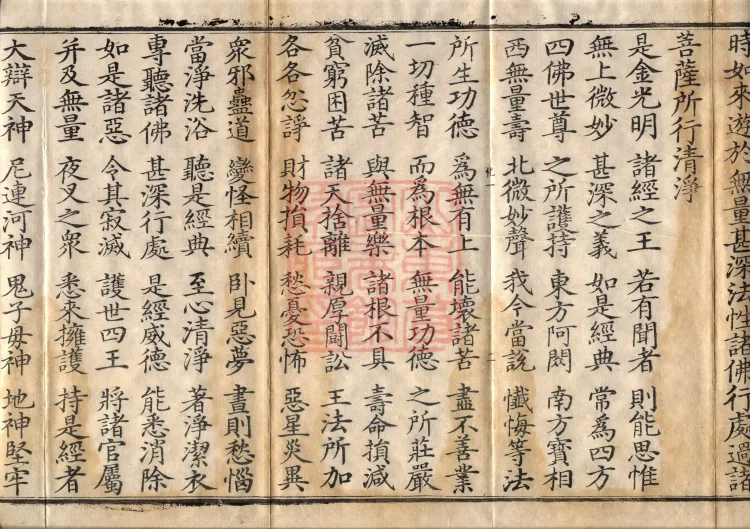 時如來遊於無量甚深法性諸佛行處過諸
菩薩所行清淨
是金光明 諸經之王 若有聞者 則能思惟
無上微妙 甚深之義 如是經典 常爲四方
四佛世尊 之所護持 東方阿閦 南方寶相
西無量壽 北微妙聲 我今當說 懺悔等法
化一 二
所生功德 爲無有上 能壞諸苦 盡不善業
一切種智 而爲根本 無量功德 之所莊嚴
滅除諸苦 與無量樂 諸根不具 壽命損減
貧窮困苦 諸天捨離 親厚鬪訟 王法所加
各各忿諍 財物損耗 愁憂恐怖 惡星災異
衆邪蠱道 變怪相續 卧見惡夢 晝則愁惱
當淨洗浴 聽是經典 至心清淨 著淨潔衣
專聽諸佛 甚深行處 是經威德 能悉消除
如是諸惡 令其寂滅 護世四王 將諸官屬
并及無量 夜叉之衆 悉來擁護 持是經者
大辯天神 尼連河神 鬼子母神 地神堅牢